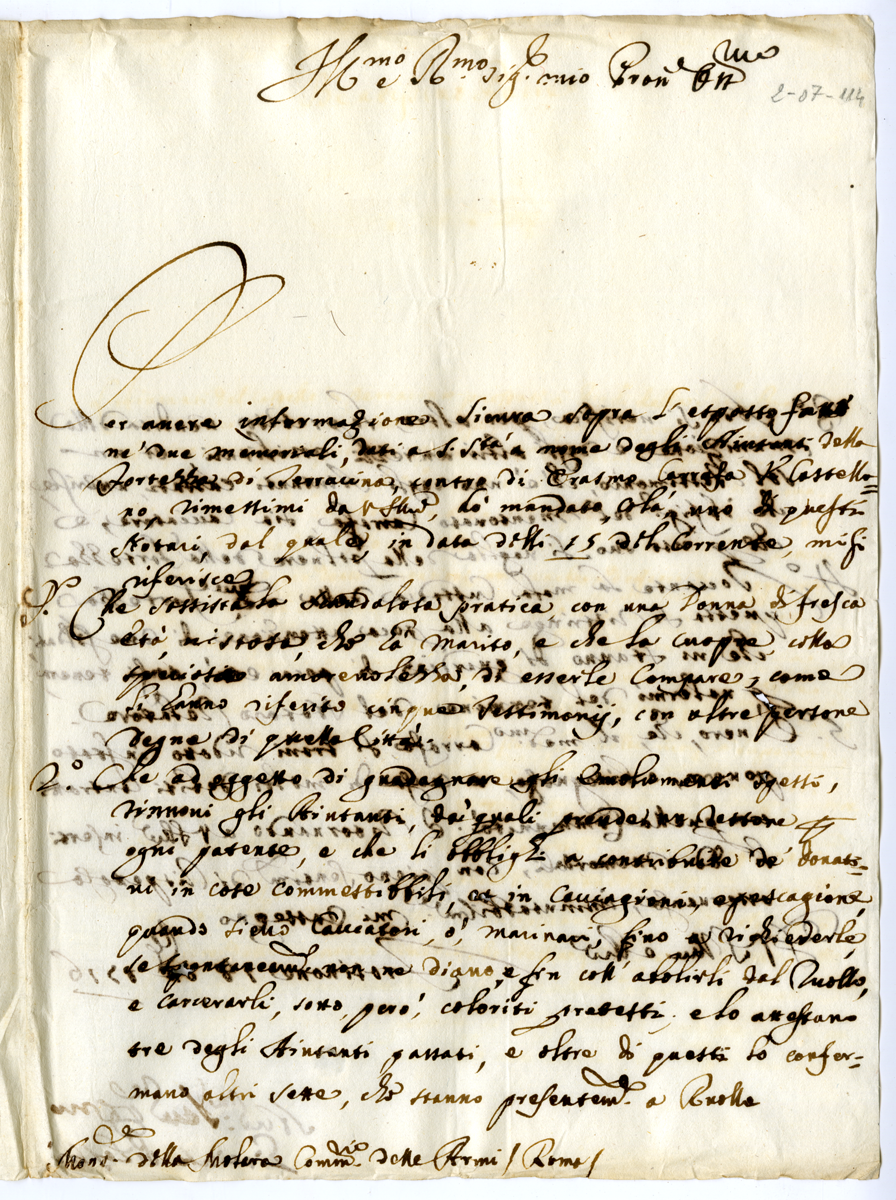 Ill.mo e R.mo Sig.r mio Pron.e Oss.mo
2-07-114
Per avere informazione sicura sopra l'esposto fatto
ne' due memoriali, dati a S. S.tà a nome degli Aiutanti della
Fortezza di Terracina, contro di Erasmo Caraffa V. Castella=
no rimessimi da V. S. Ill.ma, hò mandato colà uno di questi
Notari, dal quale, in data delli 15 del corrente, mi si
riferisce
P.o Che sottisca la scandalosa pratica con una Donna di fresca
età, nistosa, che hà marito, e che la cuopre colla
speciosa amorevolezza, di esserle Compare, come
li hanno riferito cinque Testimonij, con altre persone
degne di quella Città.
2.o Che ad oggetto di guadagnare gli emolumenti spetti,
rinnovi gli Aiutanti, da' quali prende un Testone p
ogni patente, e che li obblighi a contribuire de' donati=
vi in cose commestibbili, et in cacciagioni, e pescagione,
quando sieno Cacciatori, ò, marinari, fino a richiederle,
se spontaneam.te non ne diano, e fin coll' abolirli dal Ruollo,
e Carcerarli, sotto, però, coloriti pretesti, e lo attestano
tre degli Aiutanti passati, e oltre di questi lo confer=
mano altri sette, che stanno presentem.te a Ruollo
Mons.r della Molara Comm.rio delle Armi / Roma /